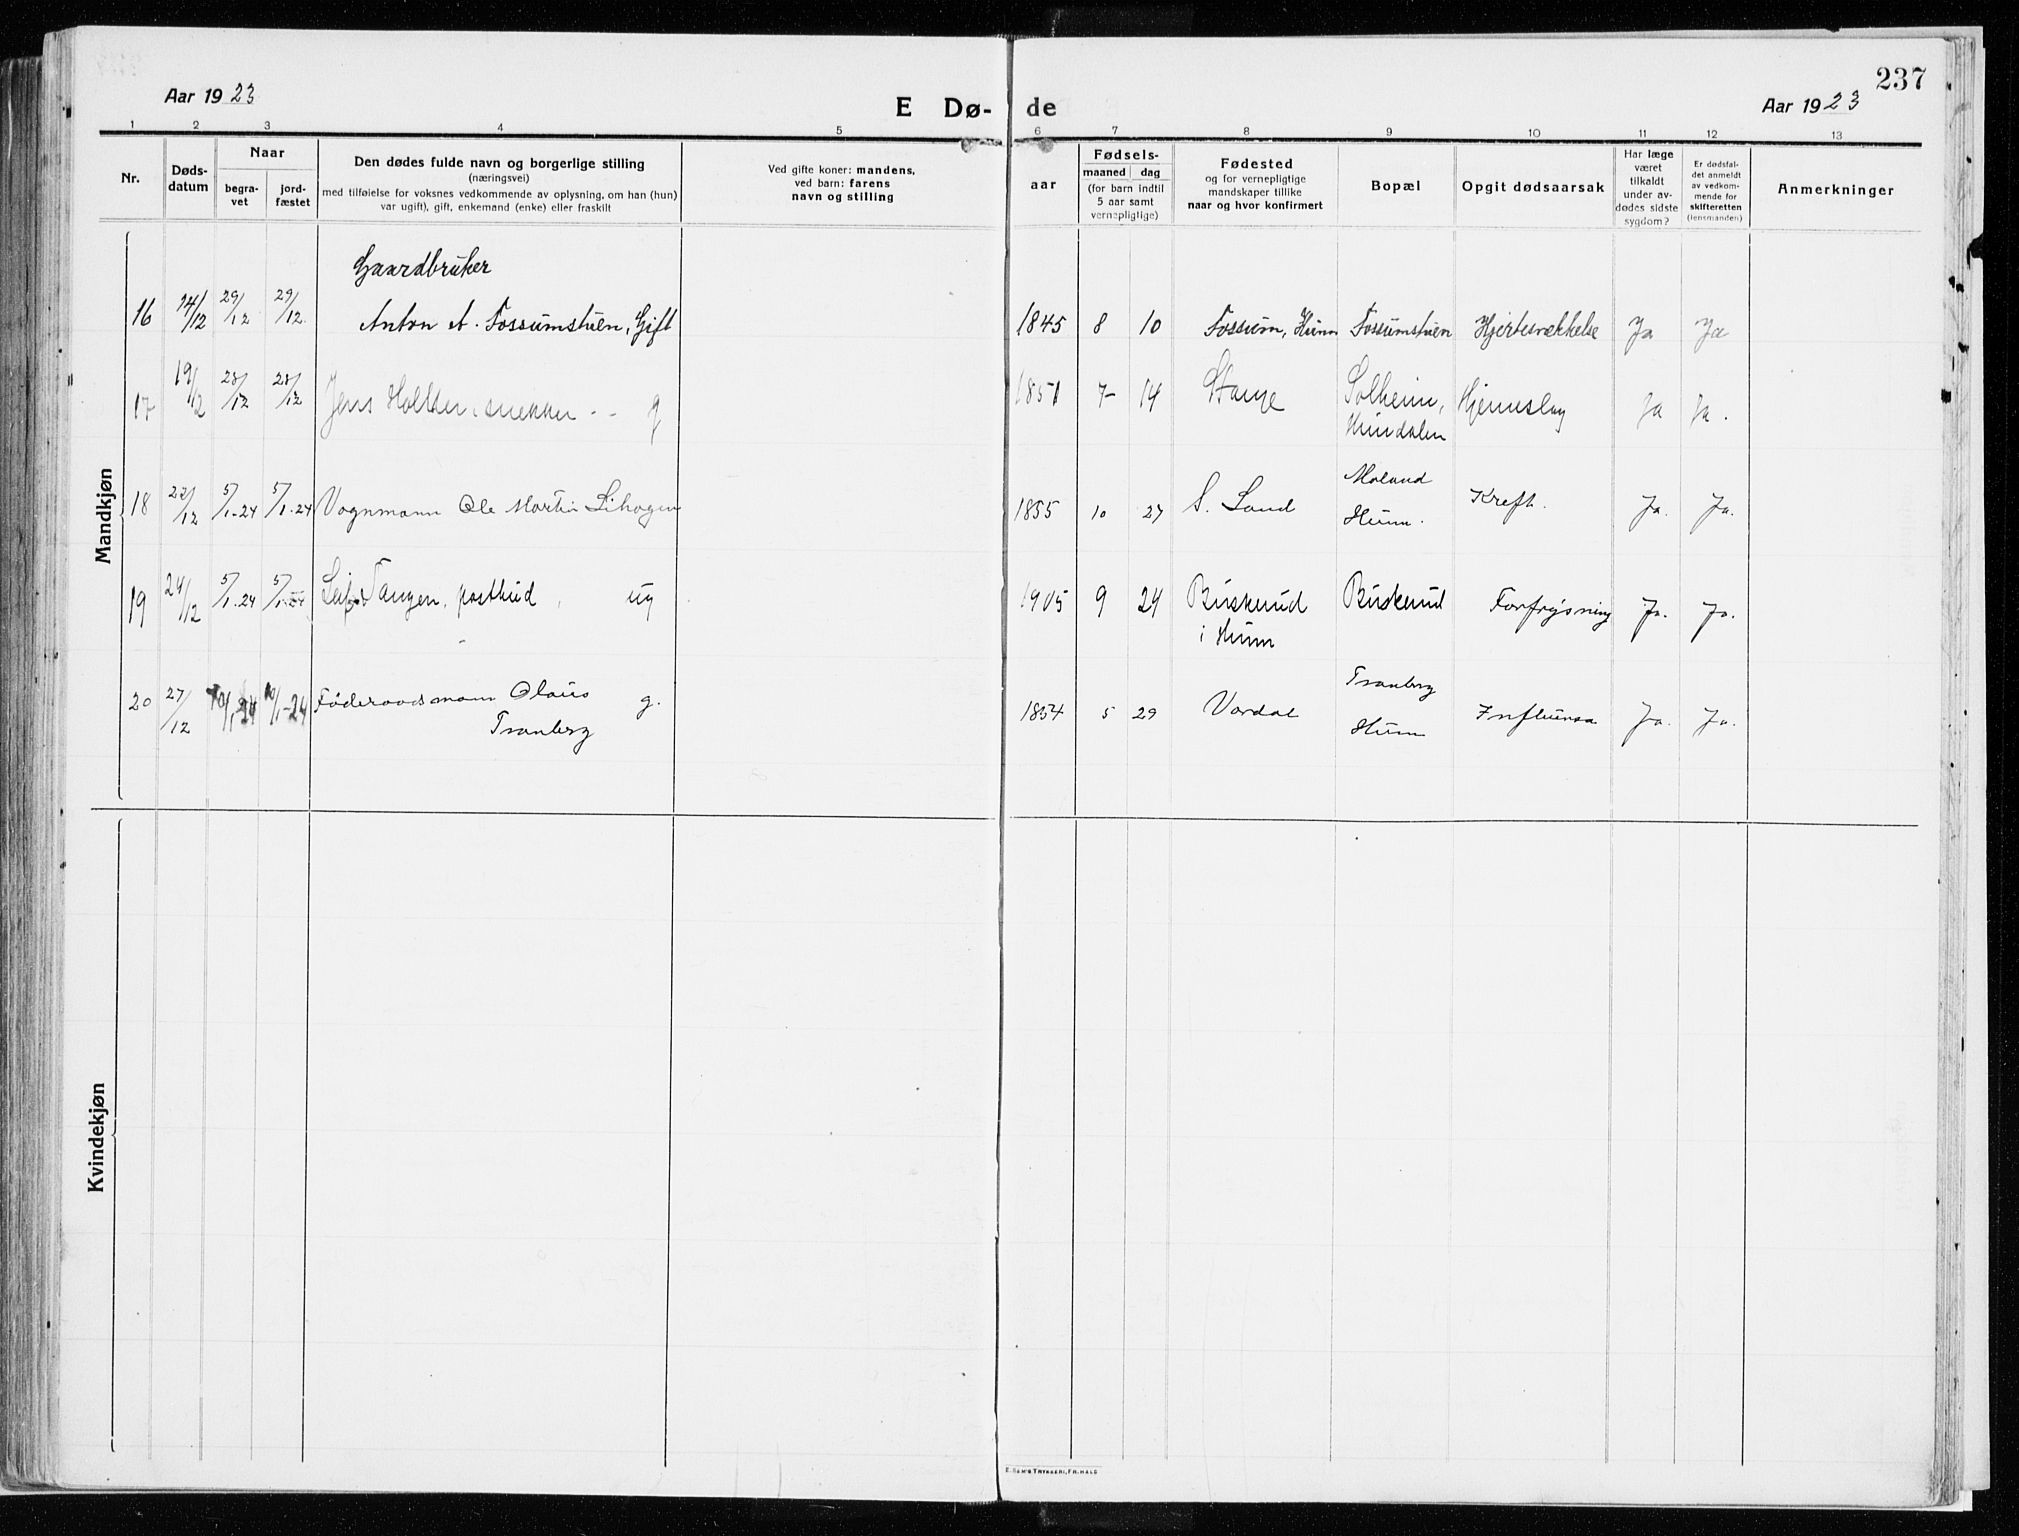 237
Aar 1923
E Dø-
de
Aar 1923
1 2 3 4 5 6 7 8 9 10 11 12 13
Nr.
Døds-
datum
Naar
begra-
vet
jord-
fæstet
Den dødes fulde navn og borgerlige stilling
(næringsvei)
med tilføielse for voksnes vedkommende av oplysning, om han (hun)
var ugift), gift, enkemand (enke) eller fraskilt
Ved gifte koner: mandens,
ved barn: farens
navn og stilling
Fødsels-
aar
maaned dag
(for barn indtil
5 aar samt
vernepligtige)
Fødested
og for vernepligtige
mandskaper tillike
naar og hvor konfirmert
Bopæl
Opgit dødsaarsak
Har læge
været
tilkaldt
under av-
dødes sidste
sygdom?
Er dødsfal-
det anmeldt
av vedkom-
mende for
skifteretten
(lensmanden)
Anmerkninger
Mandkjøn
Gaardbruker
16 14/12 29/12 29/12 Anton A. Fossumstuen, Gift 1845 8 10 Fossum, Hunn Fossumstuen Hjertesvækkelse Ja Ja
17 19/12 28/12 28/12 Jens Holther, snekker - - g 1851 7 14 Stange Solheim, Hjerneslag Ja Ja.
Hundalen
18 22/12 5/1-24 5/1-24 Vognmann Ole Martin Lihagen 1855 10 27 S. Land Moland Kreft. Ja. Ja.
Hunn.
19 24/12 5/1-24 5/1-24 Leif Tangen, postbud, ug 1905 9 24 Buskerud Buskerud Forfrysning Ja. Ja.
i Hunn
20 27/12 10/1-24 10/1-24 Føderaadsmann Olaus g. 1854 5 29 Vardal Tranberg Influensa Ja. Ja.
Tranberg Hunn
Kvindekjøn
E. SEM'S TRYKKERI, FR.HALD